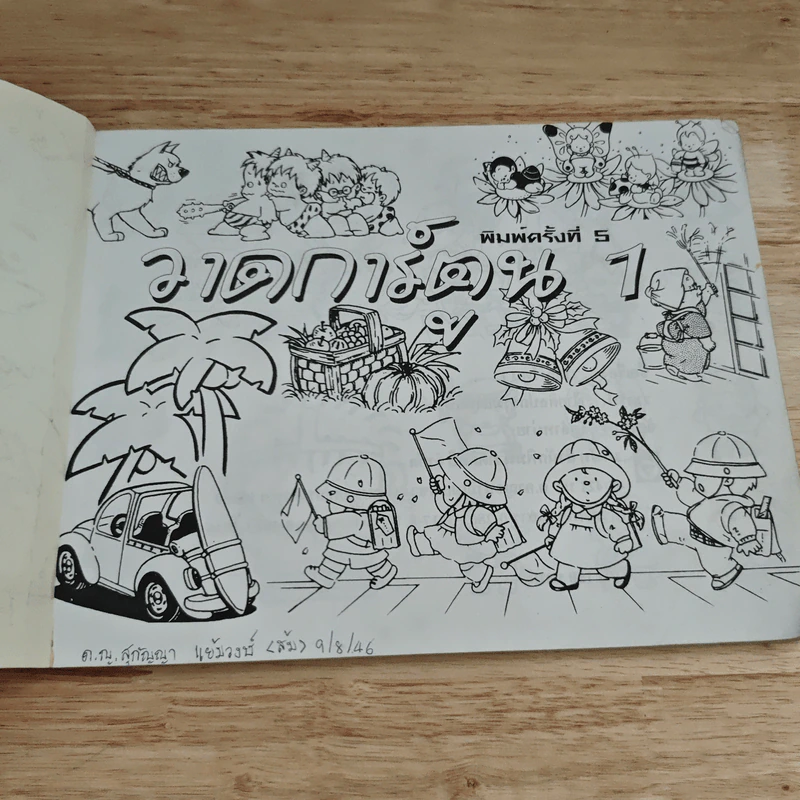 พิมพ์ครั้งที่ 5
วาดการ์ตูน 1
ด.ญ. สุกัญญา แย้มวงษ์ (ส้ม) 9/8/46